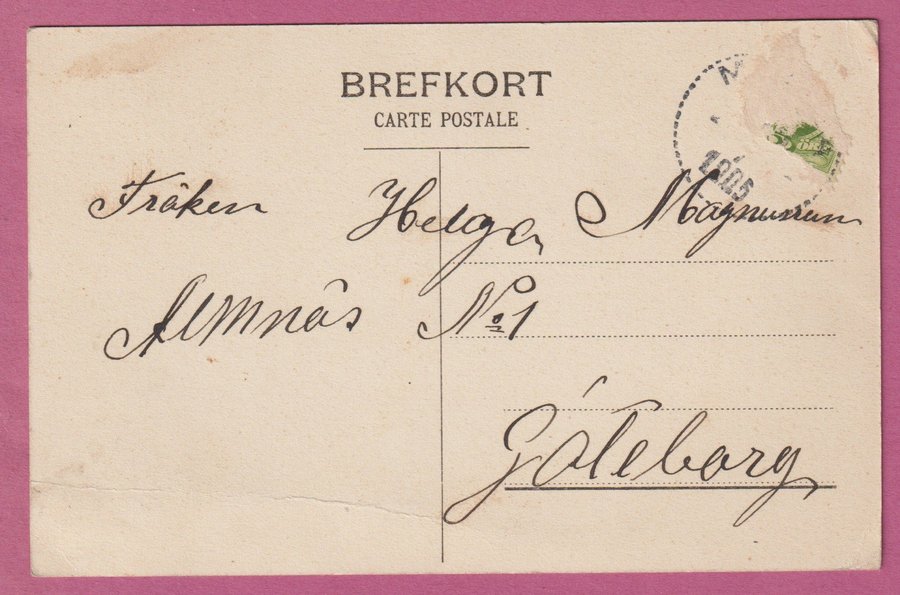 BREFKORT
CARTE POSTALE
1905
ÖRE
Fröken Helga Magnusson
Almnäs No 1
Göteborg